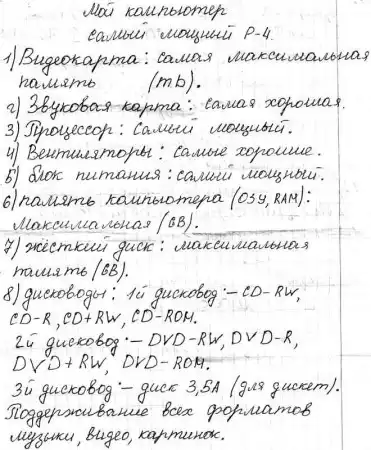 Мой компьютер
самый мощный Р-4.
1) Видеокарта: самая максимальная
память (mb).
2) Звуковая карта: самая хорошая.
3) Процессор: Самый мощный.
4) Вентиляторы: Самые хорошие.
5) блок питания: самый мощный.
6) память компьютера (ОЗУ, RAM):
Максимальная (GB).
7) жёсткий диск: максимальная
память (GB).
8) дисководы: 1й дисковод:– CD-RW,
CD-R, CD+RW, CD-ROM.
2й дисковод:– DVD-RW, DVD-R,
DVD+RW, DVD-ROM.
3й дисковод – диск 3,5А (для дискет).
Поддерживание всех форматов
музыки, видео, картинок.